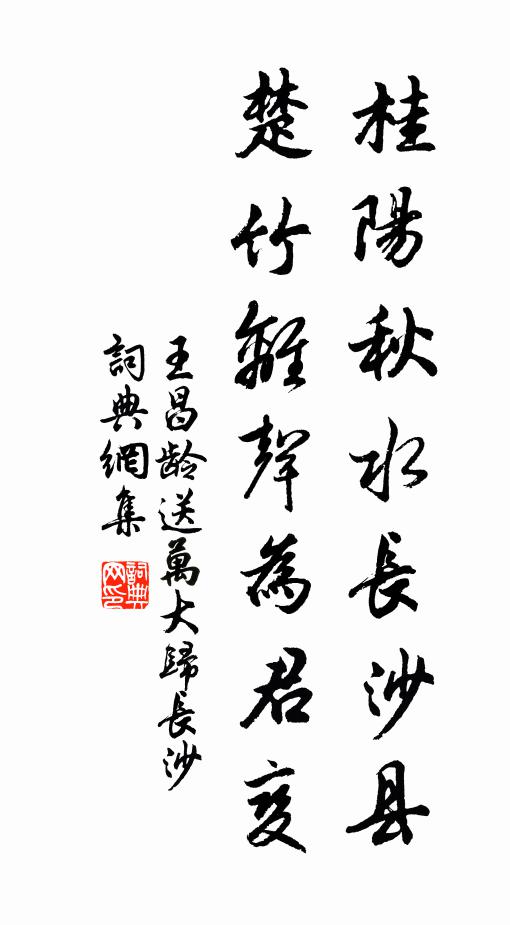 桂陽秋水長沙县
楚竹離聲為君變
王昌龄送萬大歸長沙
詞典網集
詞典网印